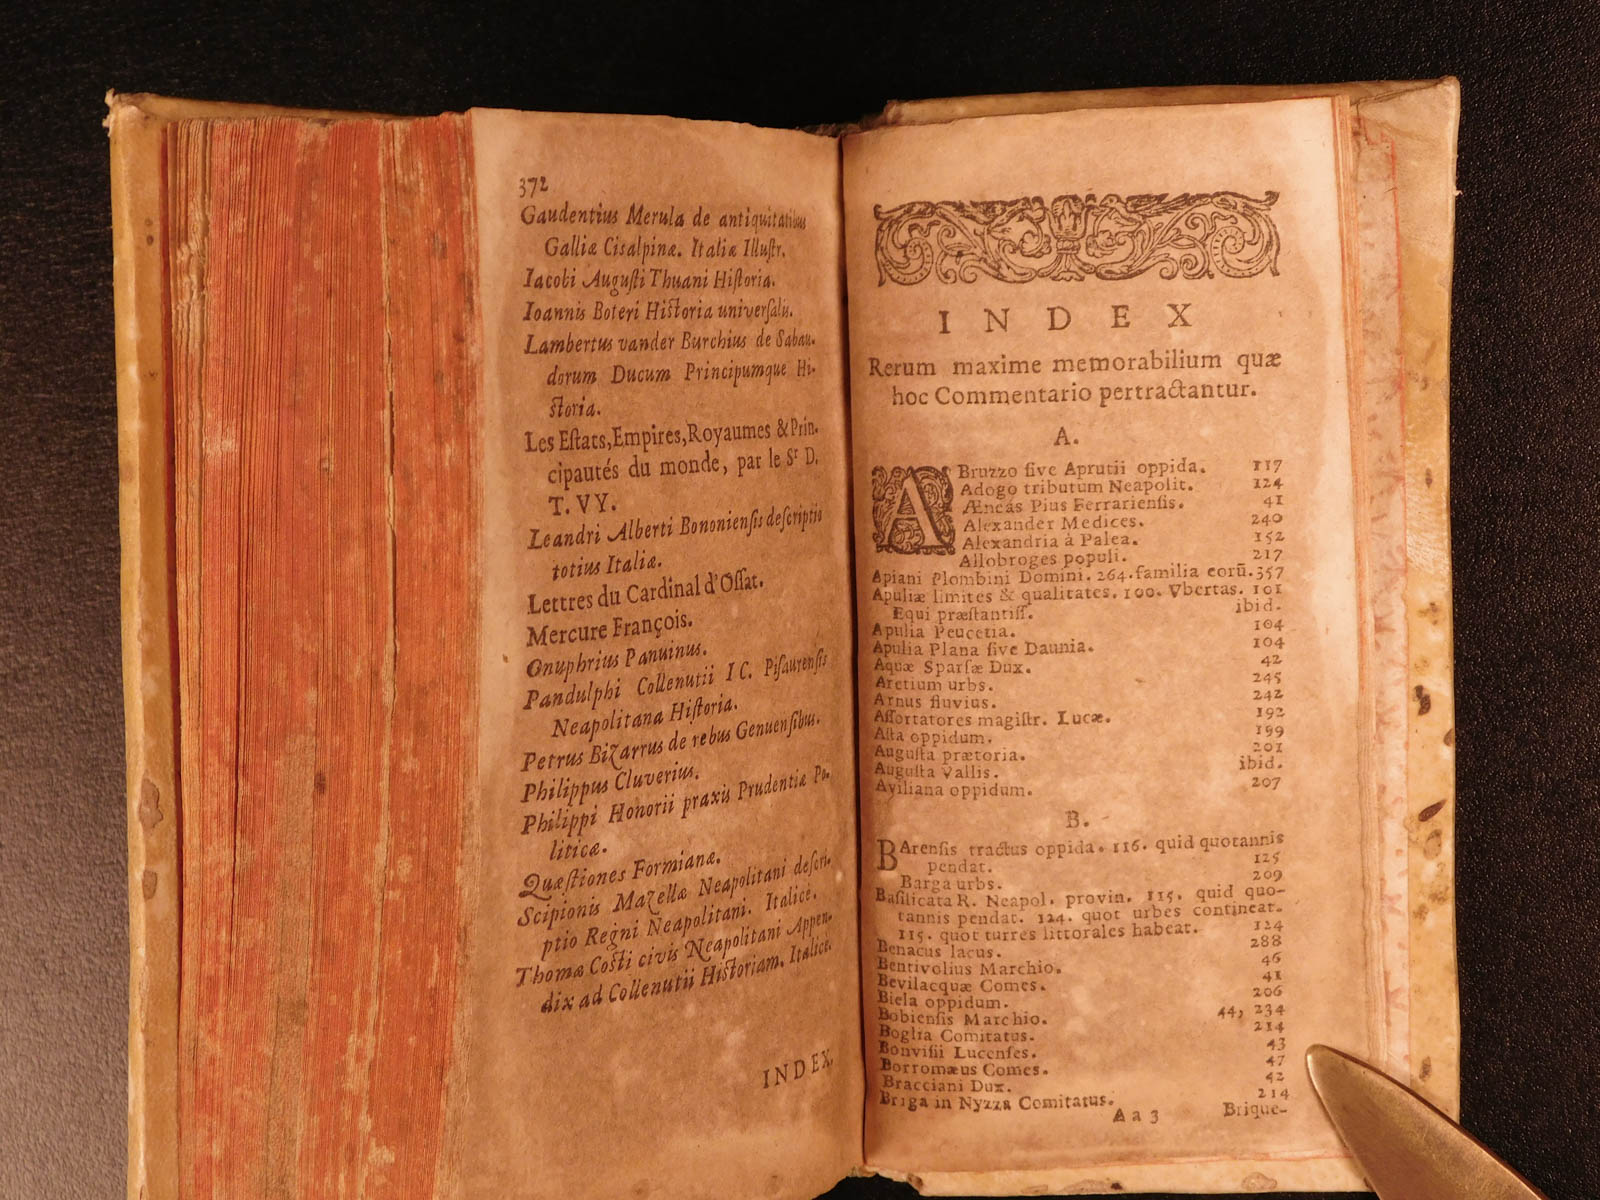 372
Gaudentius Merula de antiquitatibus
Galliæ Cisalpinæ. Italiæ Illuſtr.
Iacobi Auguſti Thuani Hiſtoria.
Ioannis Boteri Hiſtoria univerſalis.
Lambertus vander Burchius de Sabau-
dorum Ducum Principumque Hi-
ſtoria.
Les Eſtats, Empires, Royaumes & Prin-
cipautés du monde, par le Sr D.
T. VY.
Leandri Alberti Bononienſis deſcriptio
totius Italiæ.
Lettres du Cardinal d'Oſſat.
Mercure François.
Onuphrius Panuinus.
Pandulphi Collenutii I C. Piſaurenſis
Neapolitana Hiſtoria.
Petrus Bizarrus de rebus Genuenſibus.
Philippus Cluverius.
Philippi Honorii praxis Prudentiæ Po-
liticæ.
Quæſtiones Formianæ.
Scipionis Mazellæ Neapolitani deſcri-
ptio Regni Neapolitani. Italicè.
Thomæ Coſti civis Neapolitani Appen-
dix ad Collenutii Hiſtoriam. Italicè.
INDEX.
INDEX
Rerum maxime memorabilium quæ
hoc Commentario pertractantur.
A.
ABruzzo ſive Aprutii oppida. 117
Adogo tributum Neapolit. 124
Æneas Pius Ferrarienſis. 41
Alexander Medices. 240
Alexandria à Palea. 152
Allobroges populi. 217
Apiani Plombini Domini. 264. familia eorū. 357
Apuliæ limites & qualitates. 100. Vbertas. 101
Equi præſtantiſſ. ibid.
Apulia Peucetia. 104
Apulia Plana ſive Daunia. 104
Aquæ Sparſæ Dux. 42
Aretium urbs. 245
Arnus fluvius. 242
Aſſortatores magiſtr. Lucæ. 192
Aſta oppidum. 199
Auguſta prætoria. 201
Auguſta Vallis. ibid.
Aviliana oppidum. 207
B.
BArenſis tractus oppida. 116. quid quotannis
pendat. 125
Barga urbs. 209
Baſilicata R. Neapol. provin. 115. quid quo-
tannis pendat. 124. quot urbes contineat.
115. quot turres littorales habeat. 124
Benacus lacus. 288
Bentivolius Marchio. 46
Bevilacquæ Comes. 41
Biela oppidum. 206
Bobienſis Marchio. 44, 234
Boglia Comitatus. 214
Bonviſii Lucenſes. 43
Borromæus Comes. 47
Bracciani Dux. 42
Briga in Nyzza Comitatus. 214
A a 3 Brique-